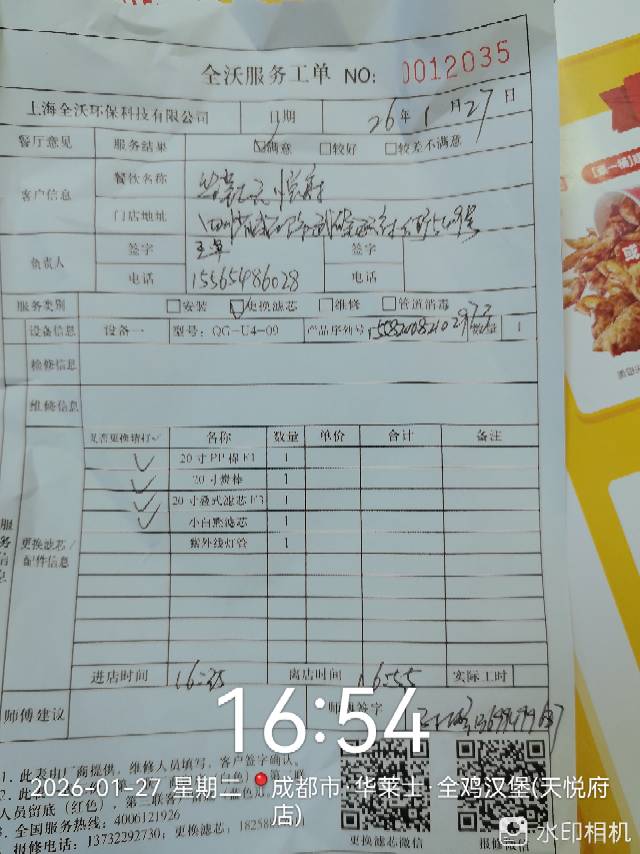 全沃服务工单 NO: 0012035
上海全沃环保科技有限公司 日期 26年1月27日
餐厅意见 服务结果 ☑满意 □较好 □较差不满意
客户信息 餐饮名称 天悦府
门店地址
负责人 签字 签字
电话 15565486028 电话
服务类别 □安装 ☑更换滤芯 □维修 □管道消毒
设备信息 设备一 型号: QG-U4-09 产品序列号 1
检修信息
维修信息
是否更换请打✓ 名称 数量 单价 合计 备注
服务信息 更换滤芯/配件信息
✓ 20寸PP棉F1 1
✓ 20寸炭棒 1
✓ 20寸叠式滤芯F3 1
✓ 小白熊滤芯 1
紫外线灯管 1
进店时间 离店时间 16:55 实际工时
师傅建议 师傅签字
16:54
1、此表由厂商提供，维修人员填写，客户签字确认。
2026-01-27 星期二 成都市·华莱士·全鸡汉堡(天悦府店)
人员留底（红色），第三联客户
3、全国服务热线: 4006121926
报修电话: 13732292730; 更换滤芯:
更换滤芯微信 报修微信
水印相机